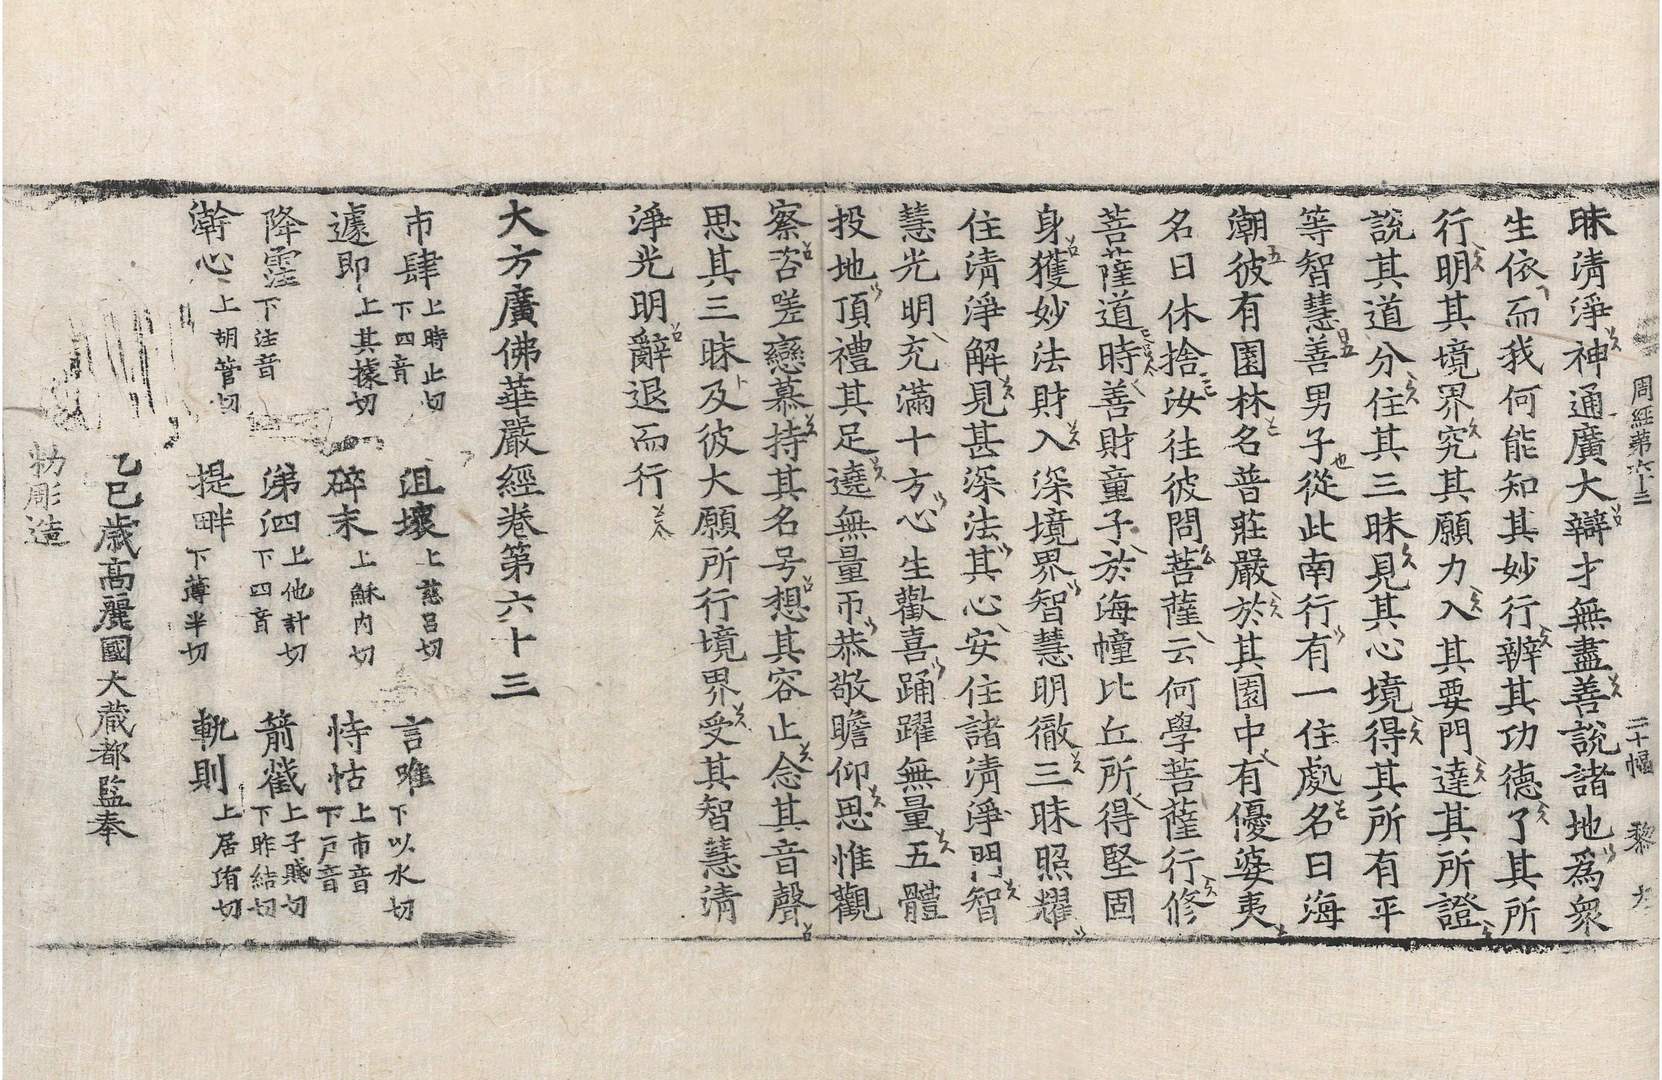 周經第六十三 二十幅 黎
昧清淨神通廣大辯才無盡善說諸地為眾
生依而我何能知其妙行辨其功德了其所
行明其境界究其願力入其要門達其所證
說其道分住其三昧見其心境得其所有平
等智慧善男子從此南行有一住處名曰海
潮彼有園林名普莊嚴於其園中有優婆夷
名曰休捨汝往彼問菩薩云何學菩薩行修
菩薩道時善財童子於海幢比丘所得堅固
身獲妙法財入深境界智慧明徹三昧照耀
住清淨解見甚深法其心安住諸清淨門智
慧光明充滿十方心生歡喜踊躍無量五體
投地頂禮其足遶無量帀恭敬瞻仰思惟觀
察咨嗟戀慕持其名号想其容止念其音聲
思其三昧及彼大願所行境界受其智慧清
淨光明辭退而行
大方廣佛華嚴經卷第六十三
市肆上時止切下四音 沮壞上慈呂切 言唯下以水切
遽即上其據切 碎末上穌內切 恃怙上市音下戶音
降霔下注音 涕泗上他計切下四音 箭截上子賤切下昨結切
澣心上胡管切 提畔下薄半切 軌則上居洧切
乙巳歲高麗國大藏都監奉
勑彫造